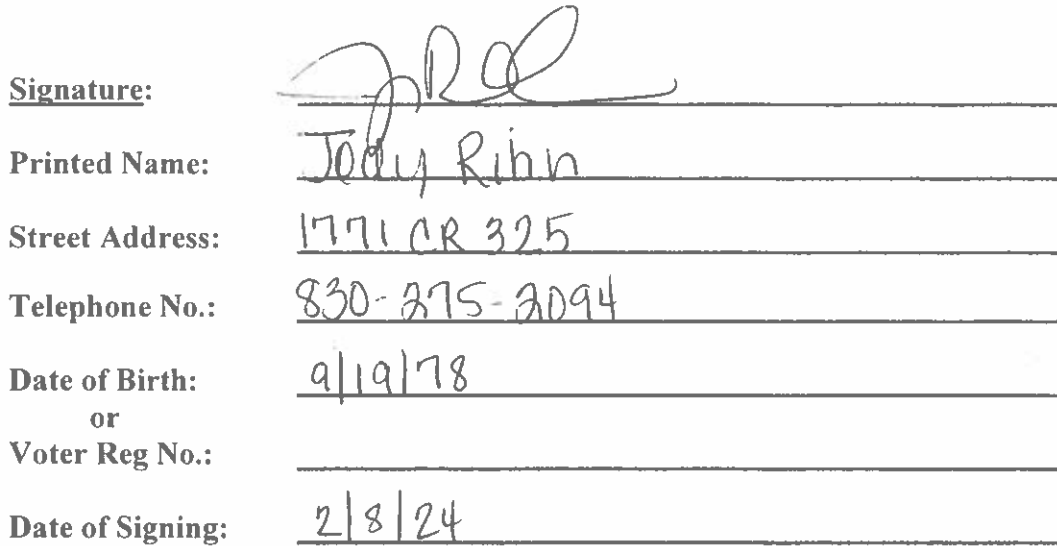 Signature:
Printed Name: Jody Rihn
Street Address: 1771 CR 325
Telephone No.: 830-275-2094
Date of Birth: 9/19/78
or
Voter Reg No.:
Date of Signing: 2/8/24